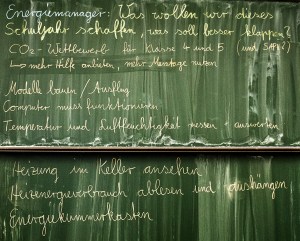 Energiemanager: Was wollen wir dieses
Schuljahr schaffen, was soll besser klappen?
CO2-Wettbewerb für Klasse 4 und 5 (und SAPh?)
↳ mehr Hilfe anbieten, mehr Montage nutzen
Modelle bauen / Ausflug
Computer muss funktionieren
Temperatur und Luftfeuchtigkeit messen + auswerten
Heizung im Keller ansehen
Heizenergieverbrauch ablesen und aushängen
Energiekummerkasten